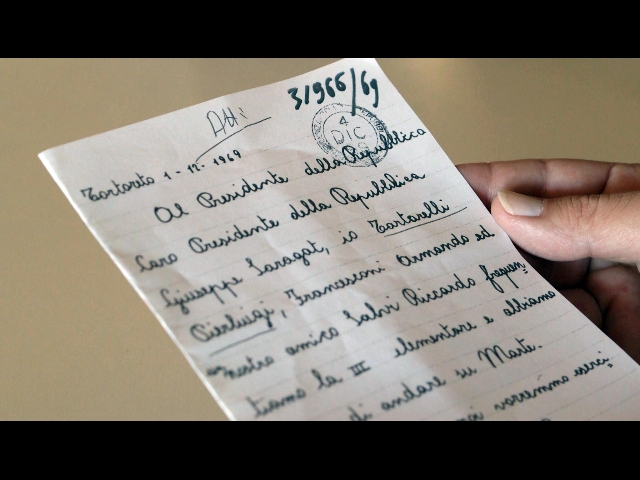 31966/69
Atti
4
DIC
Tortoreto 1-12-1969
Al Presidente della Repubblica
Caro Presidente della Repubblica
Giuseppe Saragat, io Tortorelli
Pierluigi, Francesconi Armando ed
nostro amico Salvi Riccardo frequen
tiamo la III elementare e abbiamo
di andare su Marte.
vorremmo